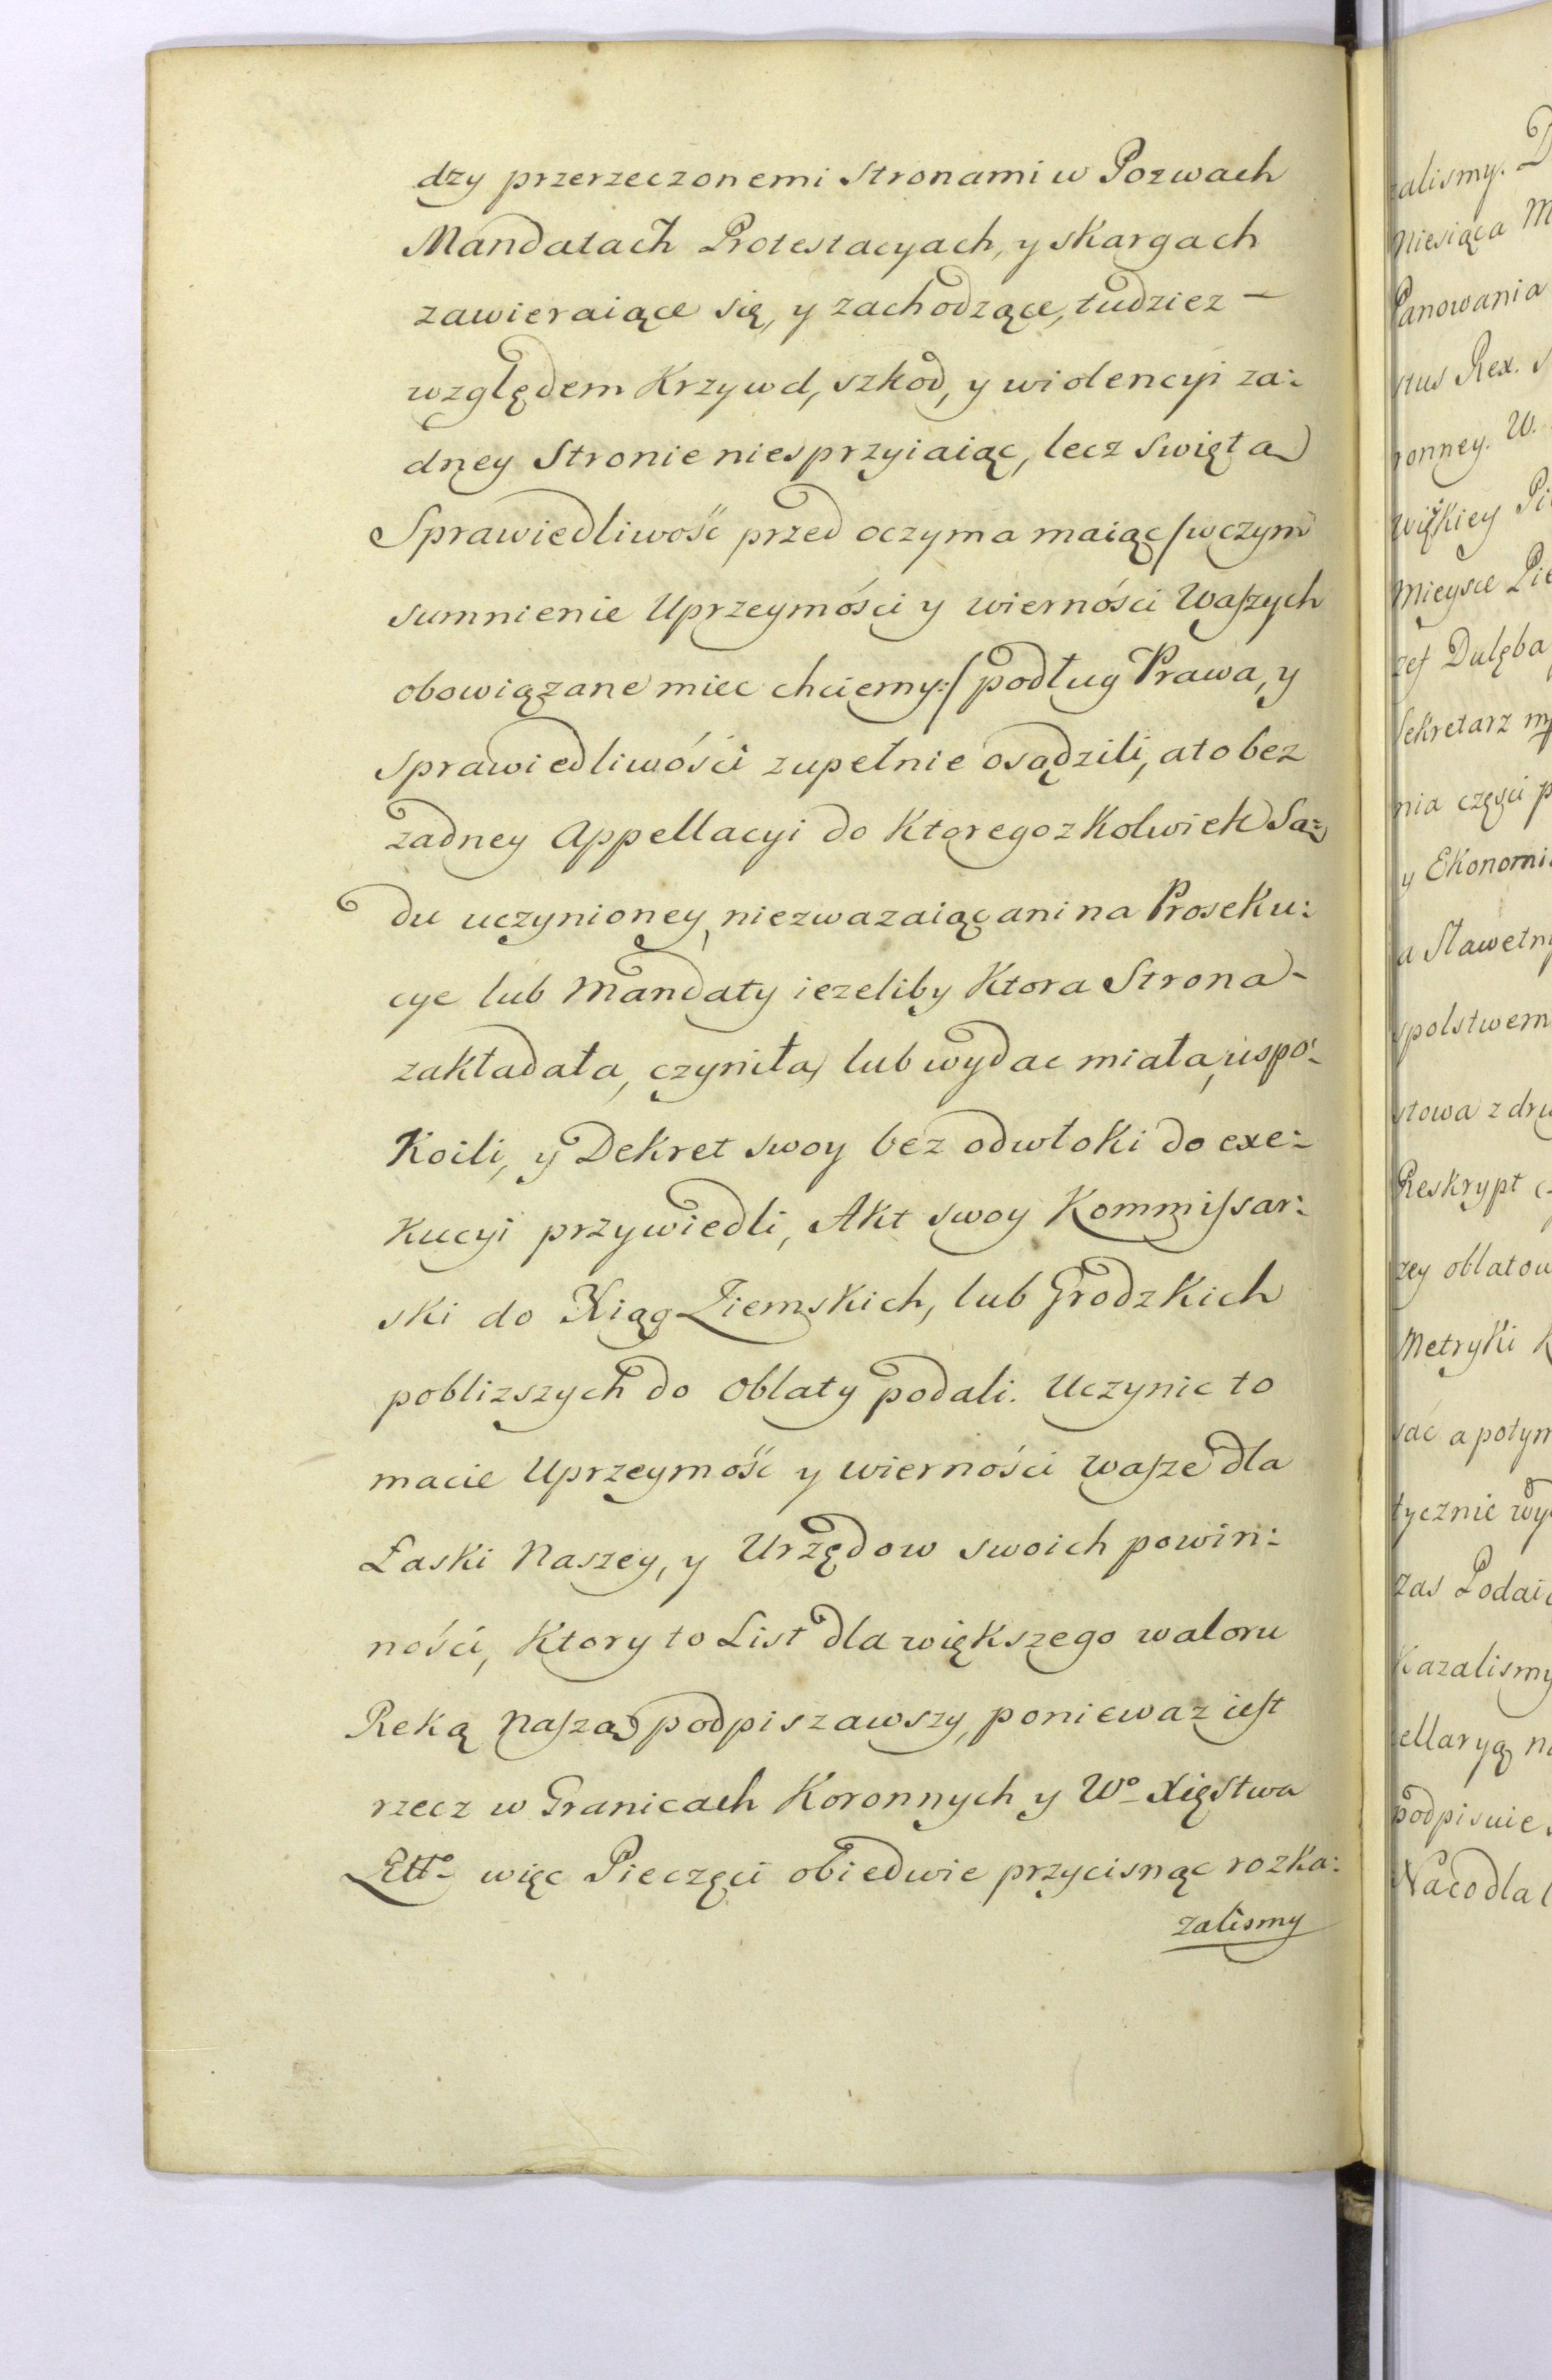 dzy przerzeczonemi Stronami w Pozwach
Mandatach Protestacyach, y skargach
zawieraiące się, y zachodzące, tudziez —
względem Krzywd, szkod, y wiolencyi za:
dney Stronie niesprzyiaiąc, lecz swięta
Sprawiedliwość przed oczyma maiąc /wczym
sumnienie Uprzeymości y wierności Waszych
obowiązane miec chcięmy:/ podług Prawa, y
sprawiedliwości zupełnie osądzili, ato bez
zadney Appellacyi do Ktoregozkolwiek Są:
du uczynioney, niezwazaiąc ani na Proseku:
cye lub Mandaty iezeliby Ktora Strona -
zakładała, czyniła, lub wydac miała, uspo:
Koili, y Dekret swoy bez odwłoki do exe:
Kucyi przywiedli, Akt swoy Kommissar:
ski do Xiąg Ziemskich, lub Grodzkich
poblizszych do Oblaty podali. Uczynic to
macie Uprzeymość y wierności wasze dla
Łaski Naszey, y Urzędow swoich powin:
ności, Ktory to List dla większego waloru
Reką Naszą podpiszawszy, poniewaz iest
rzecz w Granicach Koronnych y Wo Xięstwa
Litto więc Pieczęci obiedwie przycisnąc rozka:
zalismy
zalismy. D
Miesiąca M
Panowania
stus Rex. S
ronney. W.
więkiey Pi
Mieysce Pie
zef Dulęba
Sekretarz
nia częsci p
y Ekonomi
a Sławetn
spolstwem
stowa z dru
Reskrypt
zey oblatow
Metryki K
sać a potym
tycznie wy
zas Podai
Kazalismy
cellaryą na
podpisuie
Na co dla